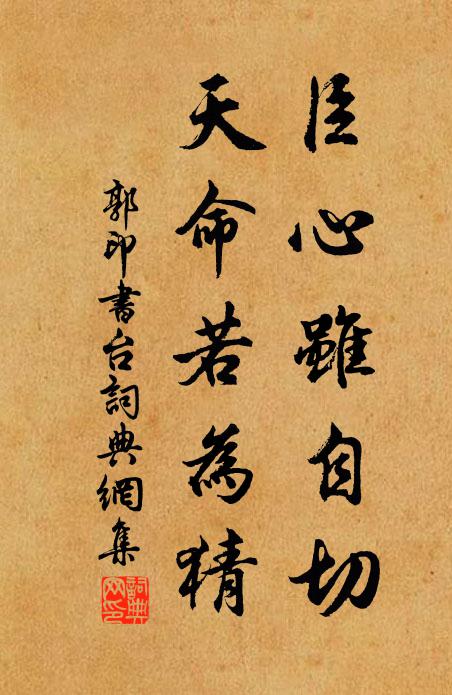 臣心雖自切
天命若為猜
郭印書台詞典網集
詞典网印